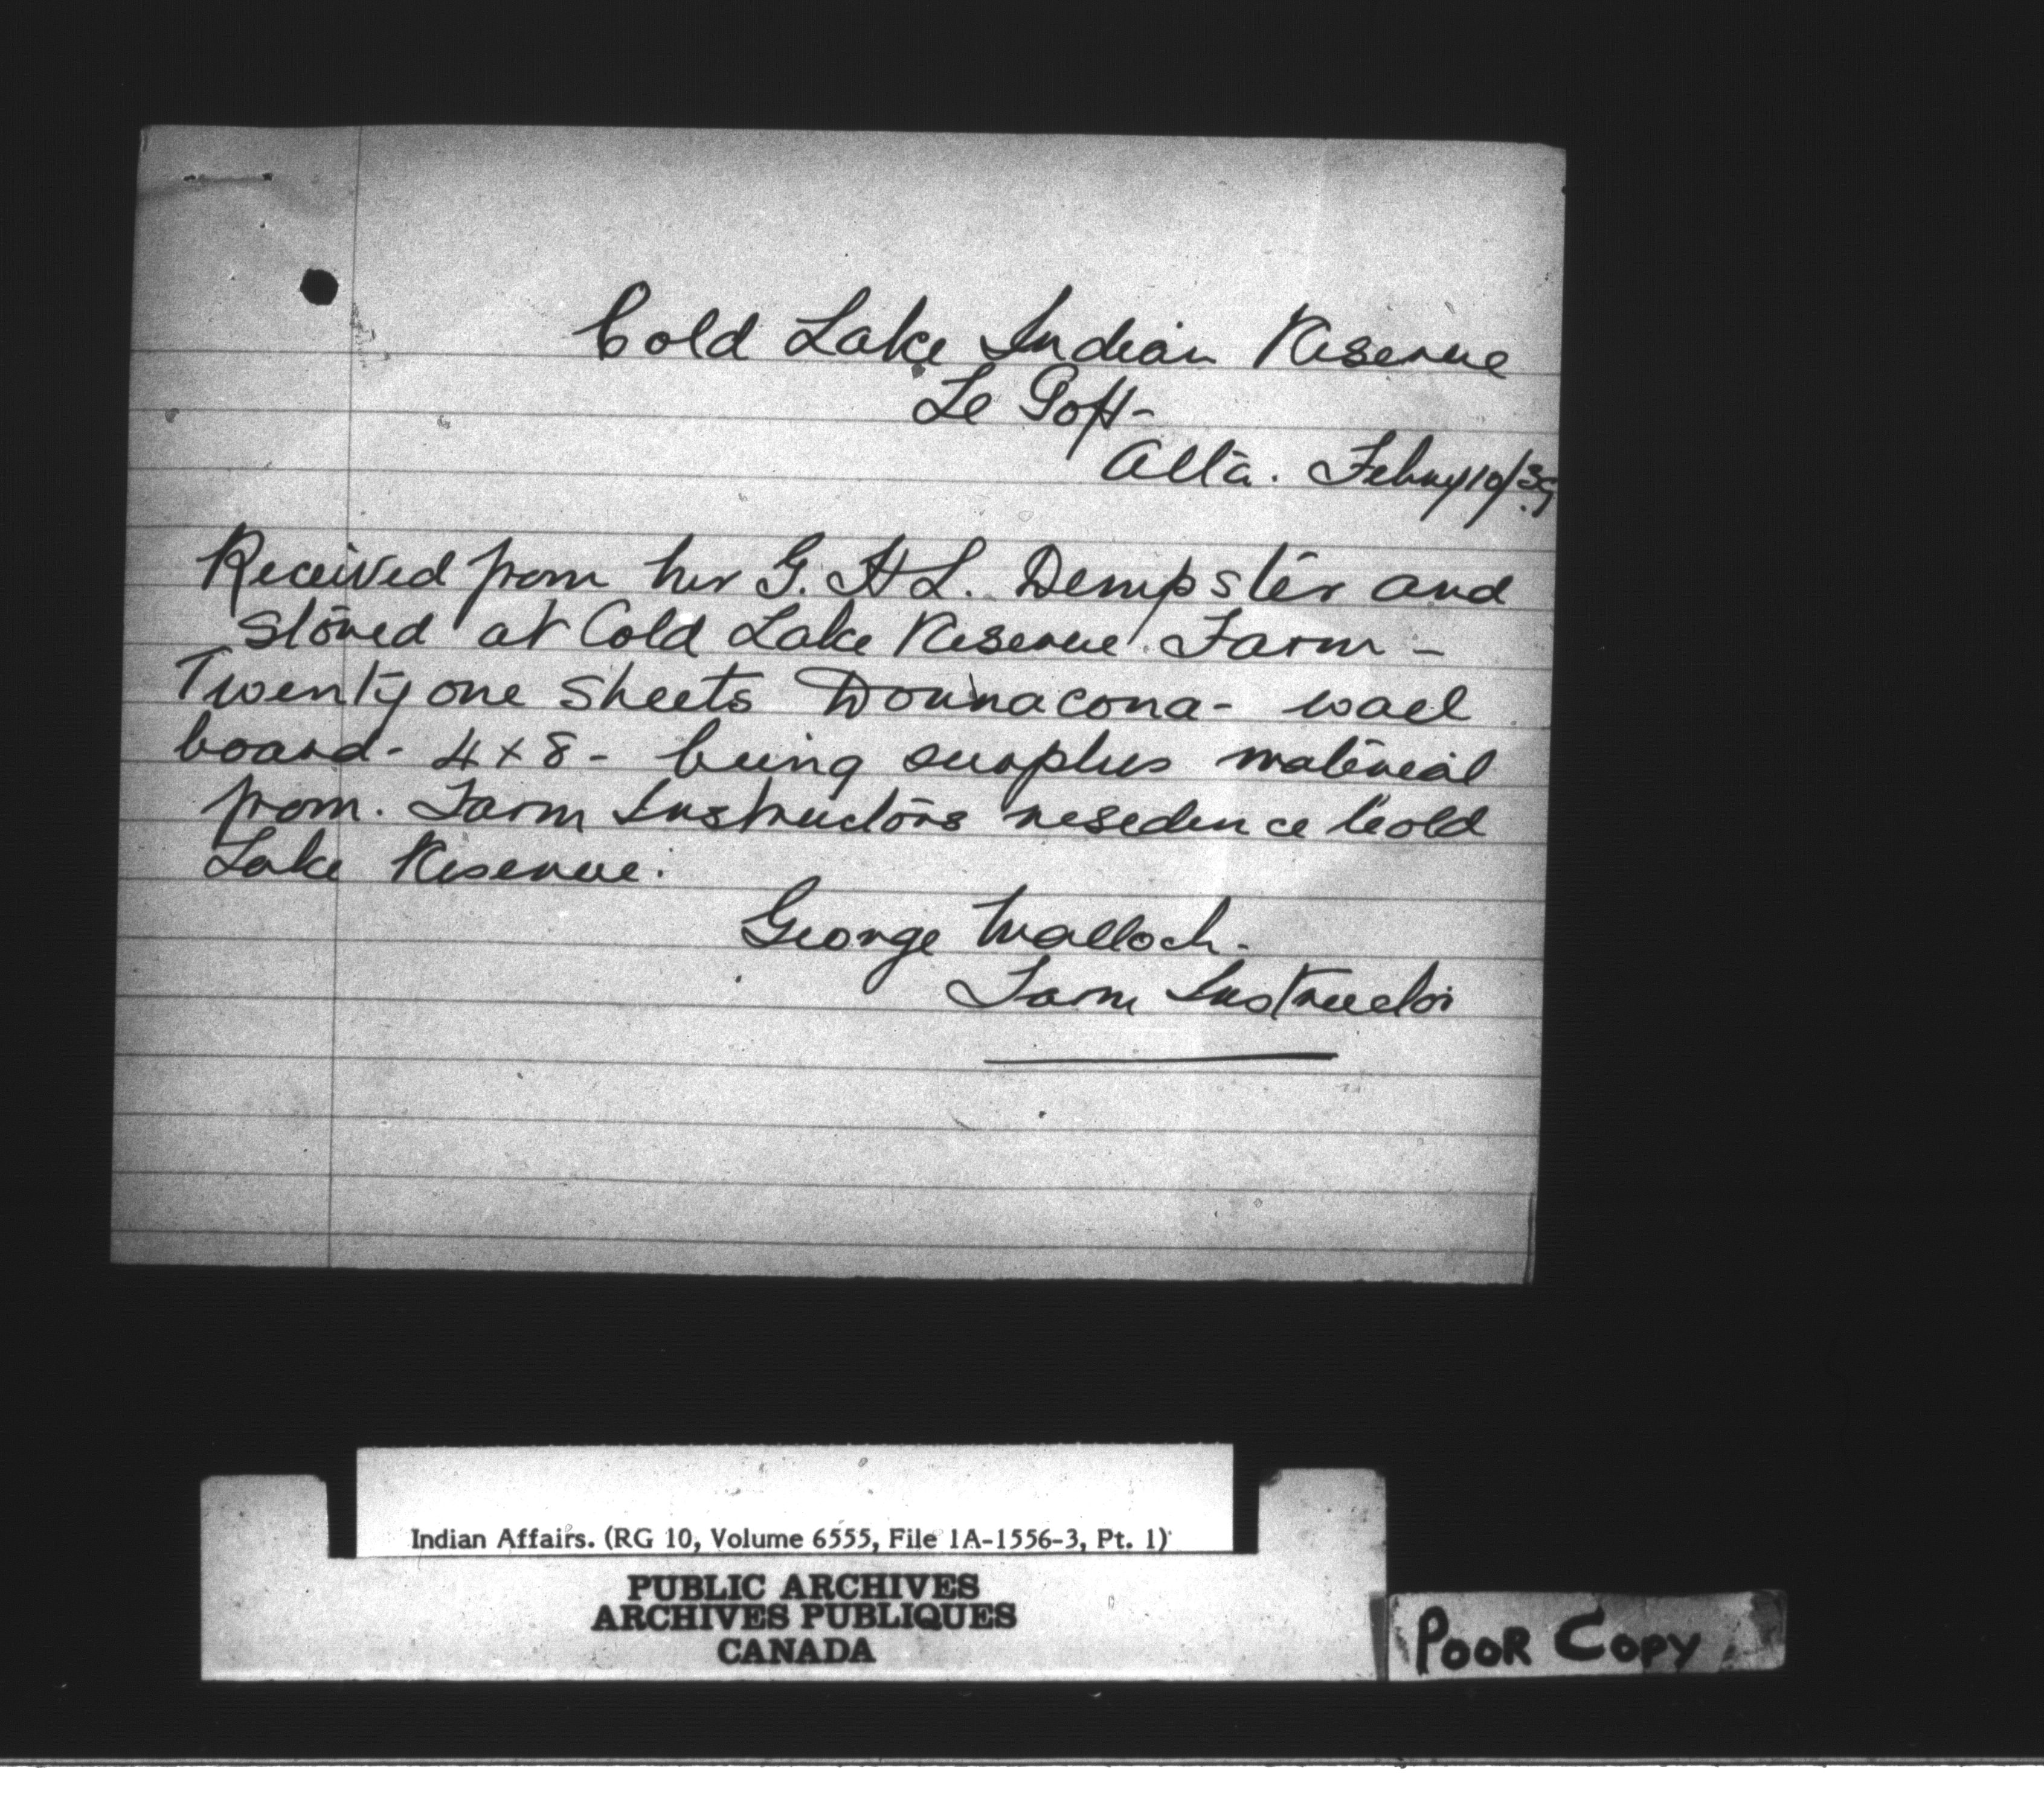 Cold Lake Indian Reserve
Le Goff-
Alta. Febuy 10/39
Received from Mr G. H L. Dempster and
stored at Cold Lake Reserve Farm -
Twenty one sheets Donnacona - wall
board - 4 x 8 - being surplus material
from. Farm Instructors residence Cold
Lake Reserve.
George Malloch.
Farm Instructor
Indian Affairs. (RG 10, Volume 6555, File 1A-1556-3, Pt. 1)
PUBLIC ARCHIVES
ARCHIVES PUBLIQUES
CANADA
POOR COPY